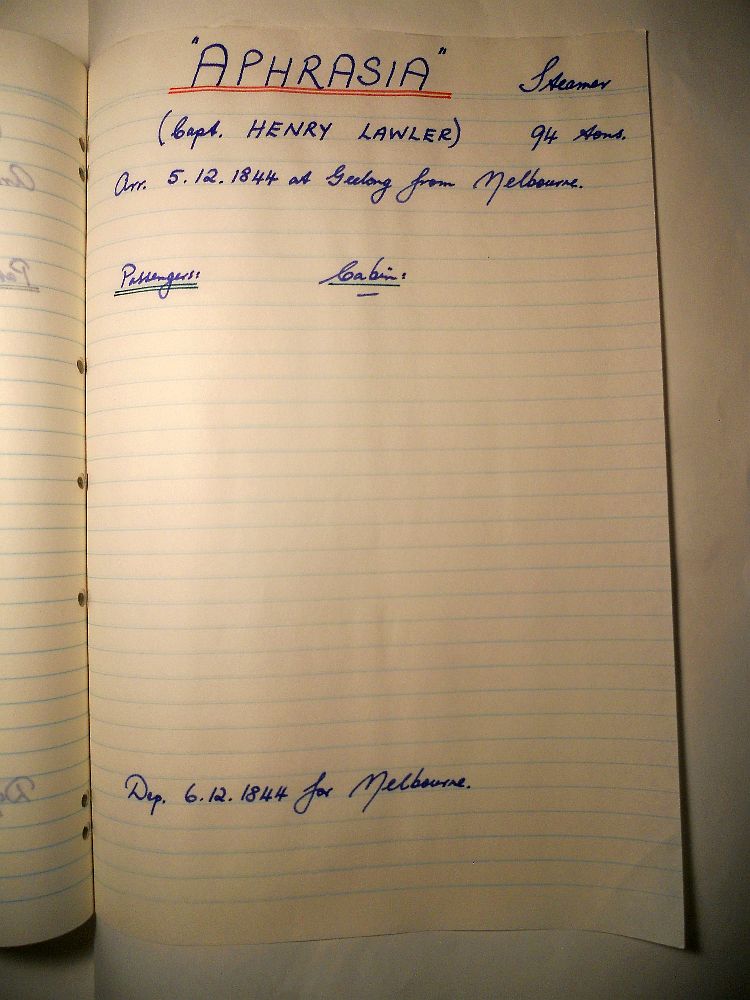 "APHRASIA" Steamer
(Capt. HENRY LAWLER) 94 tons.
Arr. 5.12.1844 at Geelong from Melbourne.
Passengers: Cabin:
—
Dep. 6.12.1844 for Melbourne.